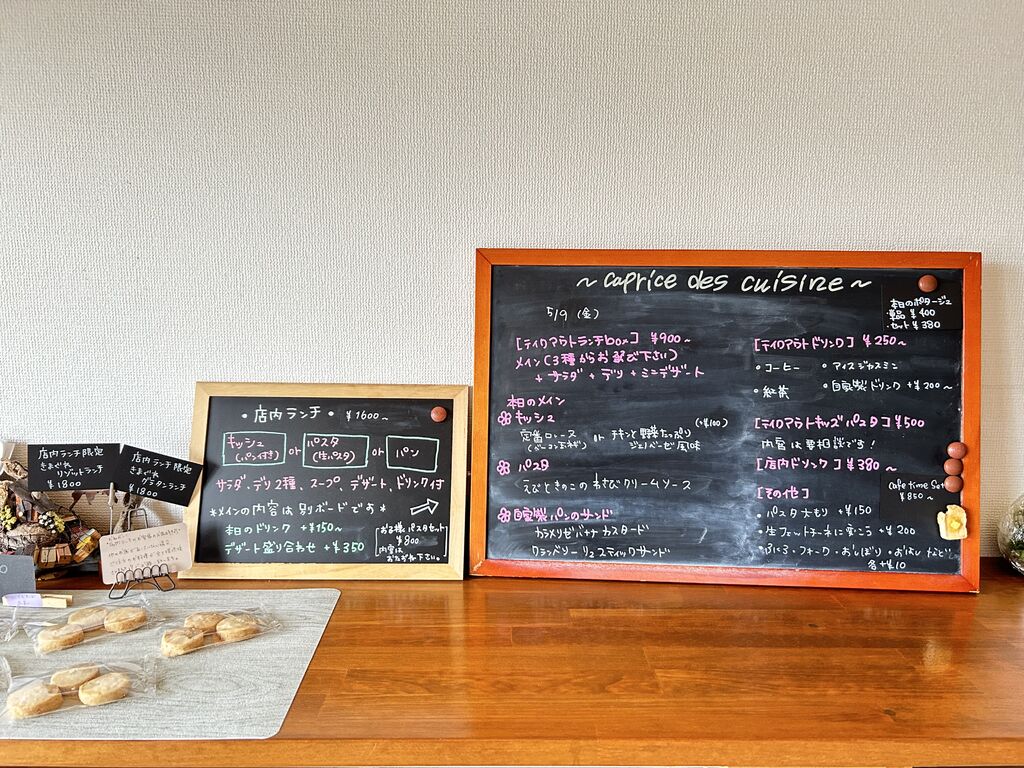 店内ランチ限定
きまぐれ
リゾットランチ
¥1800
店内ランチ限定
きまぐれ
グラタンランチ
¥1800
・店内ランチ・ ¥1600~
キッシュ
(パン付き)
or
パスタ
(生パスタ)
or
パン
サラダ、デリ2種、スープ、デザート、ドリンク付
*メインの内容は別ボードです*
本日のドリンク +¥150~
デザート盛り合わせ +¥350
お子様パスタセット
¥800
内容は
おたずね下さい。
~caprice des cuisine~
5/9 (金)
[テイクアウトランチbox] ¥900~
メイン(3種からお選び下さい)
+サラダ+デリ+ミニデザート
本日のメイン
キッシュ
定番ロレーヌ
(ベーコン玉ネギ)
or
チキンと野菜たっぷり
ジェノベーゼ風味
(+¥100)
パスタ
えびときのこのわさびクリームソース
自家製パンのサンド
カラメリゼバナナカスタード
クランベリーリュスティックサンド
本日のポタージュ
・単品 ¥400
・セット ¥380
[テイクアウトドリンク] ¥250~
・コーヒー ・アイスジャスミン
・紅茶 ・自家製ドリンク +¥200~
[テイクアウトキッズパスタ] ¥500
内容は要相談です!
[店内ドリンク] ¥380~
Cafe time Set
¥850~
[その他]
・パスタ大もり +¥150
・生フェットチーネに変こう +¥200
・フォーク・おしぼり・おはしなど
各+¥10